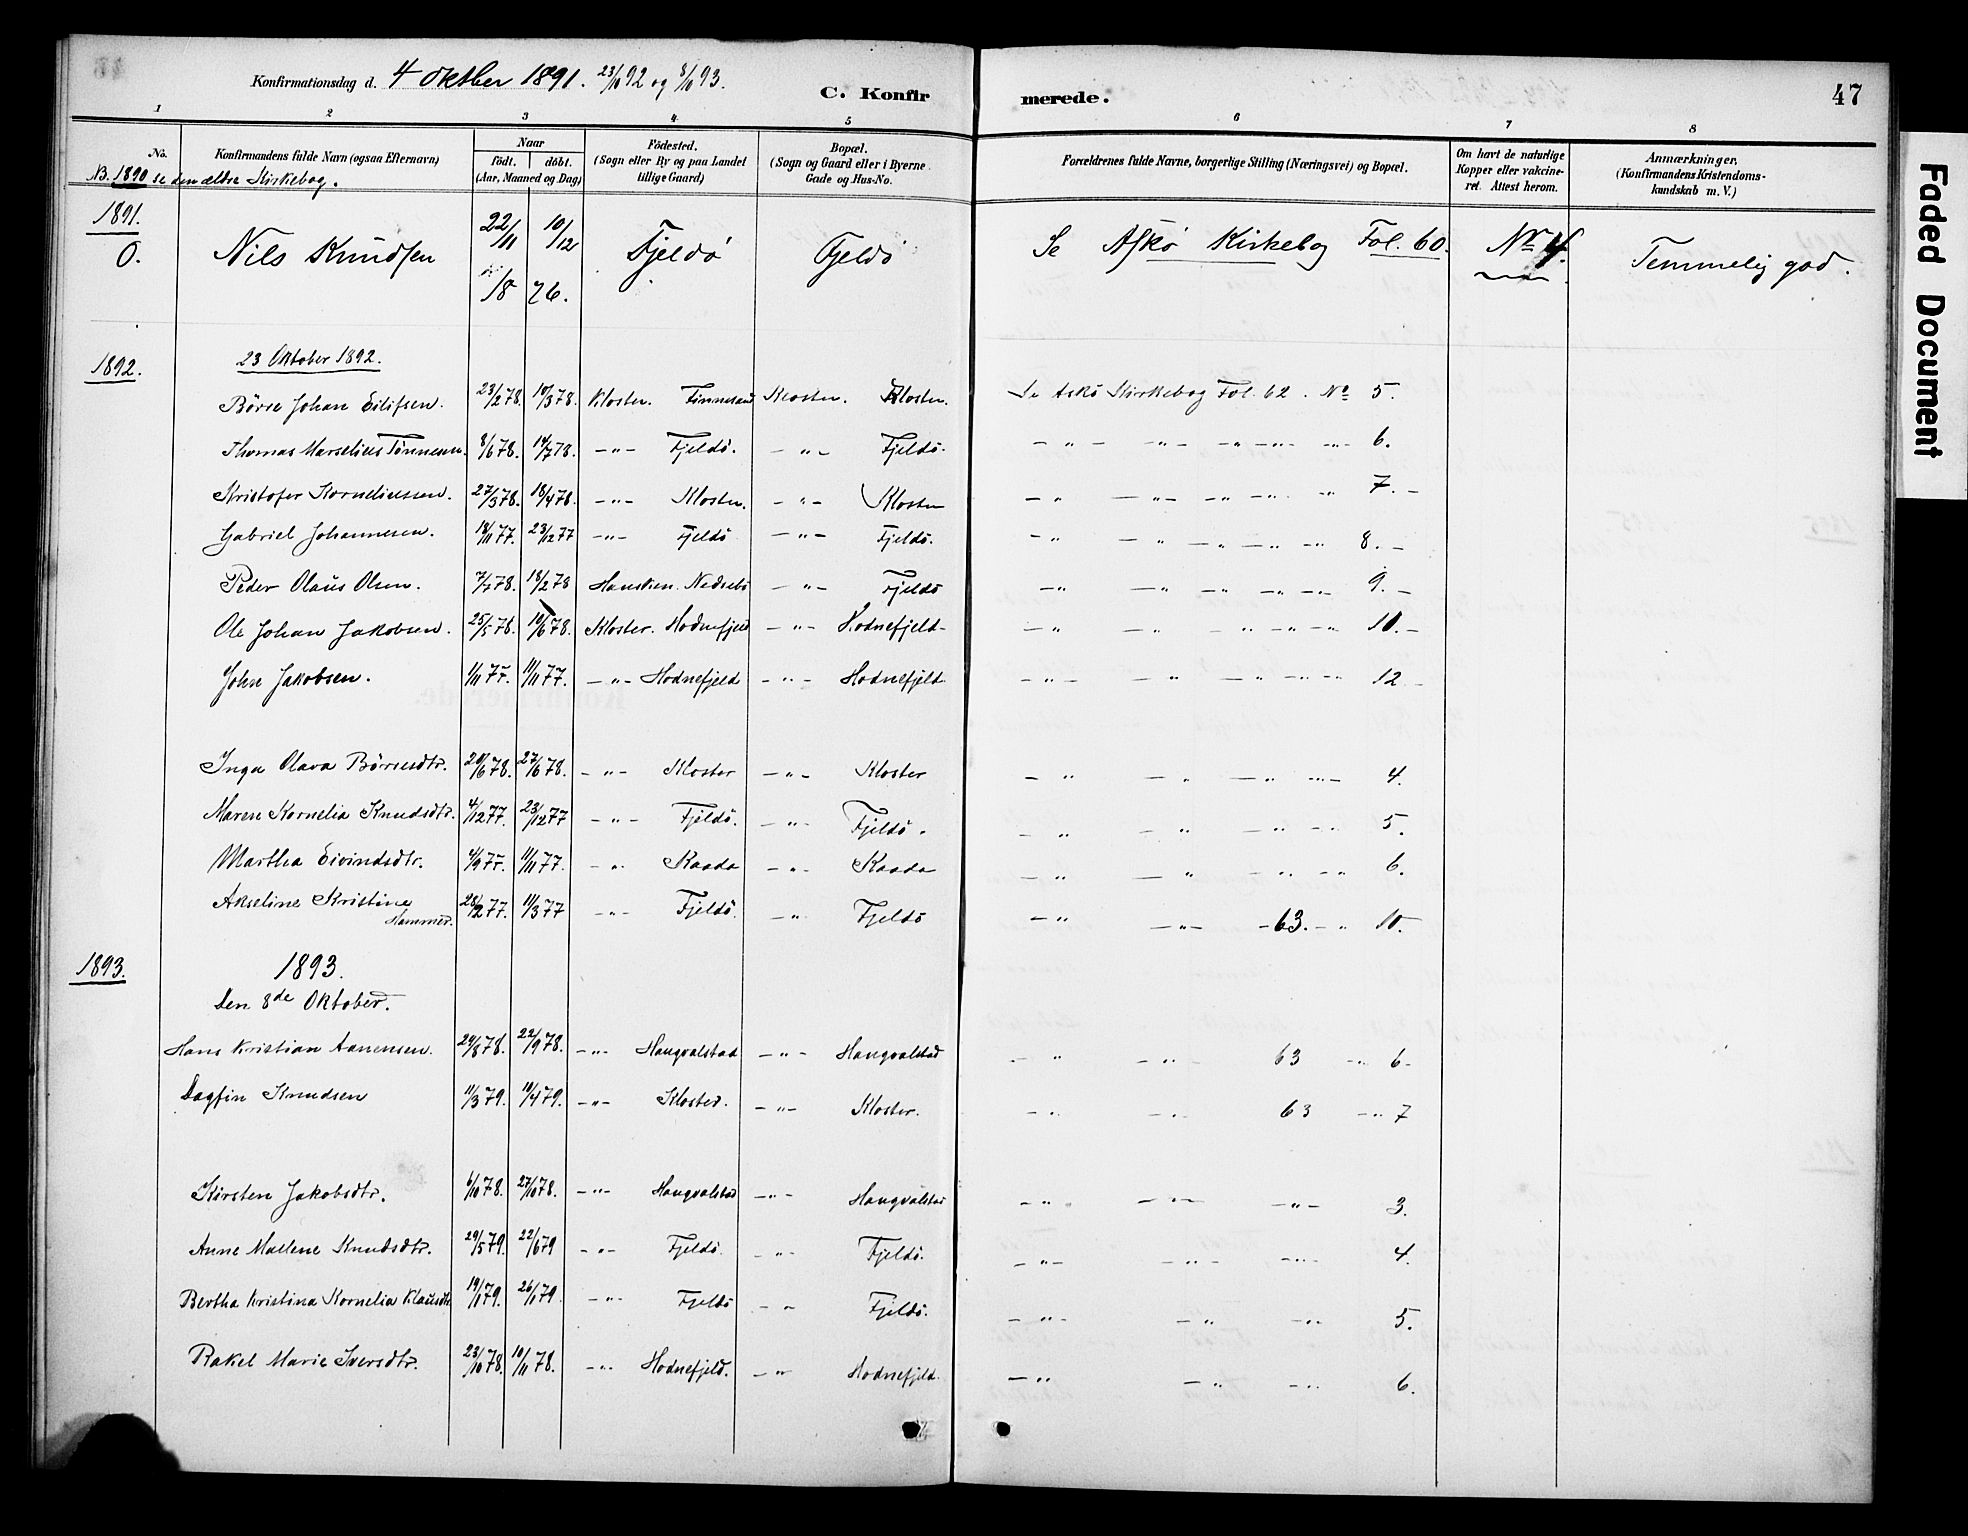 Konfirmationsdag d. 4 oktber 1891. 23/10 92 og 8/10 93.
C. Konfir merede. 47
1 2 3 4 5 6 7 8
No. Konfirmandens fulde Navn (ogsaa Efternavn) Naar födt. döbt. (Aar, Maaned og Dag) Födested. (Sogn eller By og paa Landet tillige Gaard) Bopæl. (Sogn og Gaard eller i Byerne Gade og Hus-No. Forældrenes fulde Navne, borgerlige Stilling (Næringsvei) og Bopæl. Om havt de naturlige Kopper eller vakcineret. Attest herom. Anmærkninger. (Konfirmandens Kristendomskundskab m. V.)
NB. 1890 se den ældre Kirkebog.
1891.
0. Nils Knudsen 22/11 10/12 Fjeldö Fjeldö Se Askö Kirkebog Fol. 60. No 4. Temmelig god.
18 76.
1892. 23 Oktober 1892.
Börre Johan Eilifsen. 23/2 78. 10/3 78. Kloster. Finnesand Kloster. Kloster. Se Askö Kirkebog Fol. 62. No 5.
Thomas Marselius Tönnesen. 8/6 78. 14/7 78. — " — Fjeldö. — " — Fjeldö. — " — — " — — " — " — — " — 6.
Kristofer Korneliussen. 27/3 78. 18/4 78. — " — Kloster. — " — Kloster — " — " — — " — — " — " 7. —
Gabriel Johannesen. 18/11 77. 23/12 77 — " — Fjeldö — " — Fjeldö. — " — " — " — " — " 8. —
Peder Olaus Olsen. 7/1 78. 18/2 78 Hausken. Nedsebö — " — Fjeldö — " — " — — " — — " — " — 9. —
Ole Johan Jakobsen. 25/5 78. 10/6 78. Kloster. Hodnefjeld — " — Hodnefjeld — " — " — — " — " — " — 10. —
John Jakobsen. 1/11 77. 11/11 77. — " — Hodnefjeld — " — Hodnefjeld. — " — — " — " — " — " — 12 —
Inga Olava Börresdtr. 20/6 78. 27/6 78. — " — Kloster — " — Kloster — " — " — " — " — 4.
Maren Kornelia Knudsdtr. 4/12 77. 23/12 77 — " — Fjeldö. — " — Fjeldö. — " — " — " — " — 5.
Martha Eivindsdtr. 4/9 77. 11/11 77. — " Kaada — " — Kaada — " — " — " — " 6.
Akseline Kristine Hammer. 28/2 77. 11/3 77 — " — Fjeldö. — " Fjeldö — " — " — 63. — " 10. —
1893. 1893.
Den 8de Oktober.
Hans Kristian Aanensen. 24/8 78. 22/9 78. — " — Haugvalstad — " — Haugvalstad — " — " — 63 — " 6 —
Dagfin Knudsen 11/3 79. 10/4 79. — " — Kloster. — " — Kloster. — " — " — 63 — " 7
Kirsten Jakobsdtr. 6/10 78. 27/10 78. — " — Haugvalstad — " — Haugvalstad — " — " — — " — 3.
Anne Mallene Knudsdtr. 29/5 79. 22/6 79 — " — Fjeldö. — " — Fjeldö. — " — — " — — " — 4.
Bertha Kristina Kornelia Klausdtr. 19/1 79. 26/1 79 — " — Fjeldö — " Fjeldö. — " — — " — " 5.
Rakel Marie Iversdtr. 23/10 78. 10/11 78. — " — Hodnefjeld. — " — Hodnefjeld. — " — " — " 6.
Faded Document